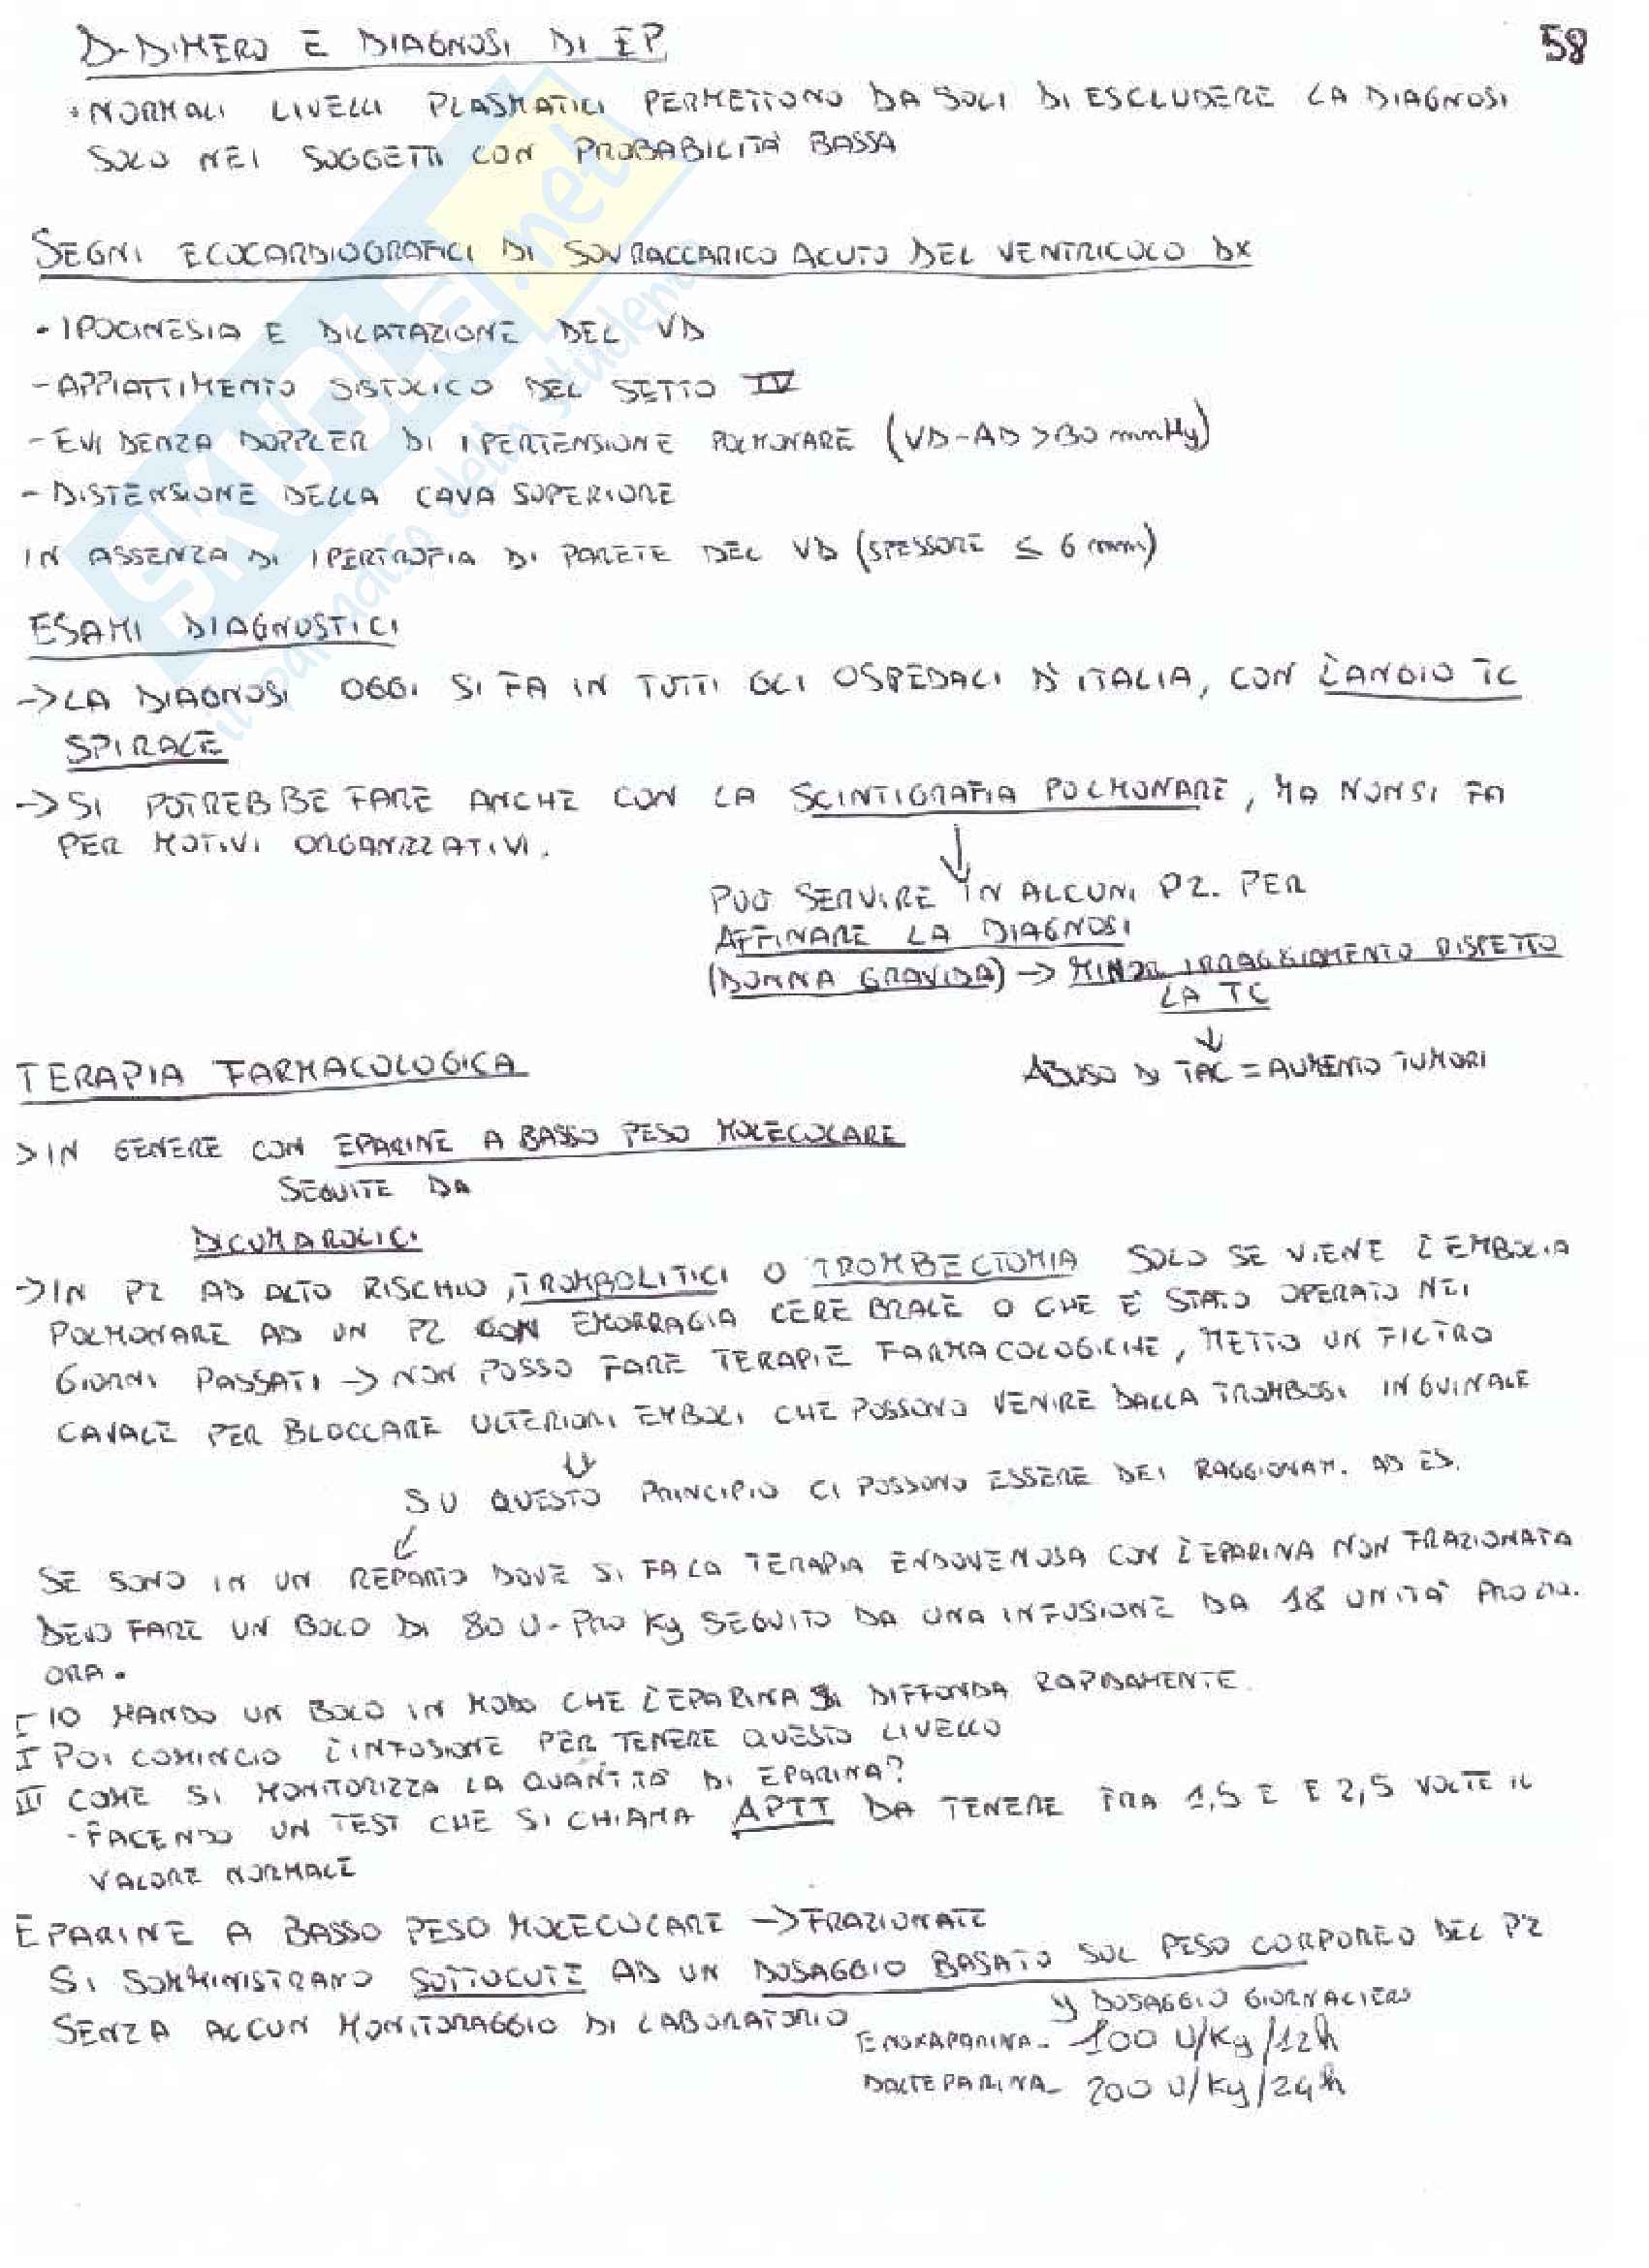 D-DIMERO E DIAGNOSI DI EP
58
• NORMALI LIVELLI PLASMATICI PERMETTONO DA SOLI DI ESCLUDERE LA DIAGNOSI
SOLO NEI SOGGETTI CON PROBABILITÀ BASSA
SEGNI ECOCARDIOGRAFICI DI SOVRACCARICO ACUTO DEL VENTRICOLO DX
- IPOCINESIA E DILATAZIONE DEL VD
- APPIATTIMENTO SISTOLICO DEL SETTO IV
- EVIDENZA DOPPLER DI IPERTENSIONE POLMONARE (VD-AD > 30 mmHg)
- DISTENSIONE DELLA CAVA SUPERIORE
IN ASSENZA DI IPERTROFIA DI PARETE DEL VD (SPESSORE ≤ 6 mm)
ESAMI DIAGNOSTICI
-> LA DIAGNOSI OGGI SI FA IN TUTTI GLI OSPEDALI D'ITALIA, CON L'ANGIO TC
SPIRALE
-> SI POTREBBE FARE ANCHE CON LA SCINTIGRAFIA POLMONARE, MA NON SI FA
PER MOTIVI ORGANIZZATIVI.
↓
PUÒ SERVIRE IN ALCUNI PZ. PER
AFFINARE LA DIAGNOSI
(DONNA GRAVIDA) -> MINOR IRRAGGIAMENTO RISPETTO
LA TC
↓
ABUSO DI TAC = AUMENTO TUMORI
TERAPIA FARMACOLOGICA
> IN GENERE CON EPARINE A BASSO PESO MOLECOLARE
SEGUITE DA
DICUMAROLICI
-> IN PZ AD ALTO RISCHIO, TROMBOLITICI O TROMBECTOMIA SOLO SE VIENE L'EMBOLIA
POLMONARE AD UN PZ CON EMORRAGIA CEREBRALE O CHE È STATO OPERATO NEI
GIORNI PASSATI -> NON POSSO FARE TERAPIE FARMACOLOGICHE, METTO UN FILTRO
CAVALE PER BLOCCARE ULTERIORI EMBOLI CHE POSSONO VENIRE DALLA TROMBOSI INGUINALE
⇓
SU QUESTO PRINCIPIO CI POSSONO ESSERE DEI RAGGIONAM. AD ES.
↙
SE SONO IN UN REPARTO DOVE SI FA LA TERAPIA ENDOVENOSA CON L'EPARINA NON FRAZIONATA
DEVO FARE UN BOLO DI 80 U- PRO Kg SEGUITO DA UNA INFUSIONE DA 18 UNITÀ PRO
ORA.
I IO MANDO UN BOLO IN MODO CHE L'EPARINA SI DIFFONDA RAPIDAMENTE
I POI COMINCIO L'INFUSIONE PER TENERE QUESTO LIVELLO
III COME SI MONITORIZZA LA QUANTITÀ DI EPARINA?
- FACENDO UN TEST CHE SI CHIAMA APTT DA TENERE FRA 1,5 E E 2,5 VOLTE IL
VALORE NORMALE
EPARINE A BASSO PESO MOLECOLARE -> FRAZIONATE
SI SOMMINISTRANO SOTTOCUTE AD UN DOSAGGIO BASATO SUL PESO CORPOREO DEL PZ
SENZA ALCUN MONITORAGGIO DI LABORATORIO
DOSAGGIO GIORNALIERO
ENOXAPARINA - 100 U/Kg/12h
DALTEPARINA - 200 U/Kg/24h
SKUOLA.net
il paradiso dello studente